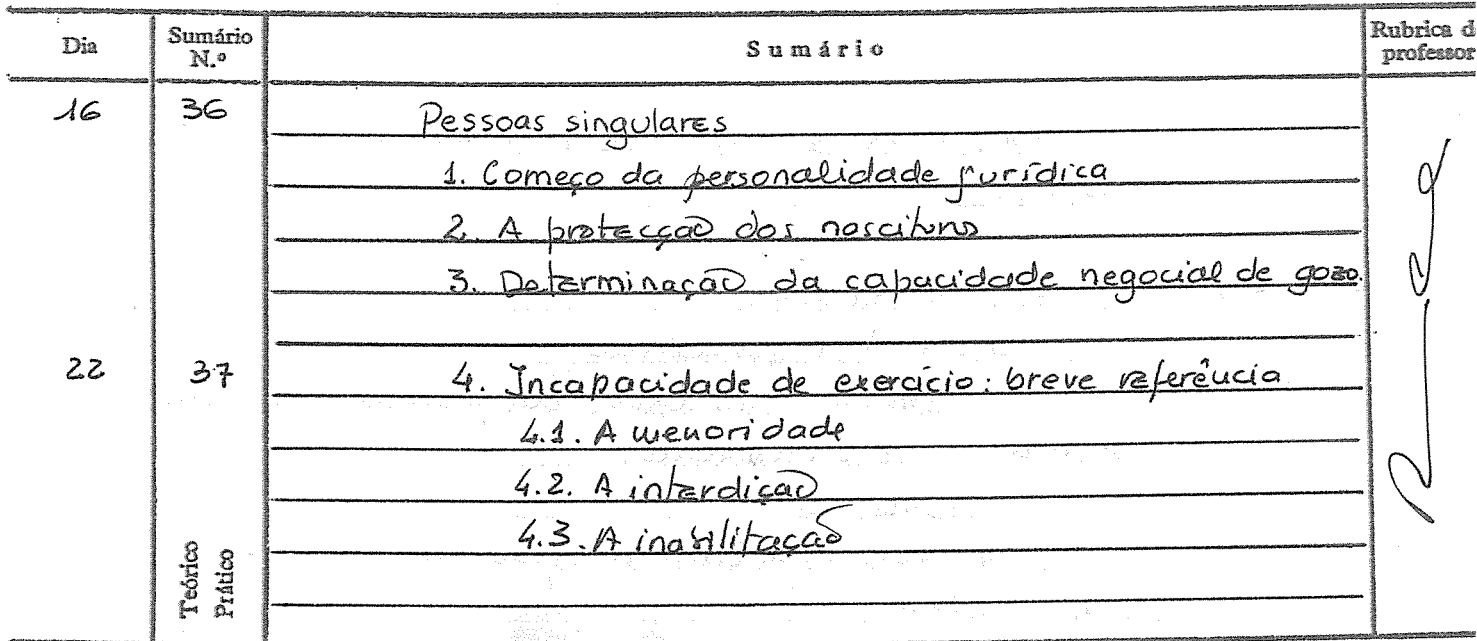 Dia Sumário N.º Sumário Rubrica d professor
16 36 Pessoas singulares
1. Começo da personalidade jurídica
2. A protecção dos nascituros
3. Determinação da capacidade negocial de gozo.
22 37 4. Incapacidade de exercício: breve referência
4.1. A menoridade
4.2. A interdição
4.3. A inabilitação
Teórico
Prático